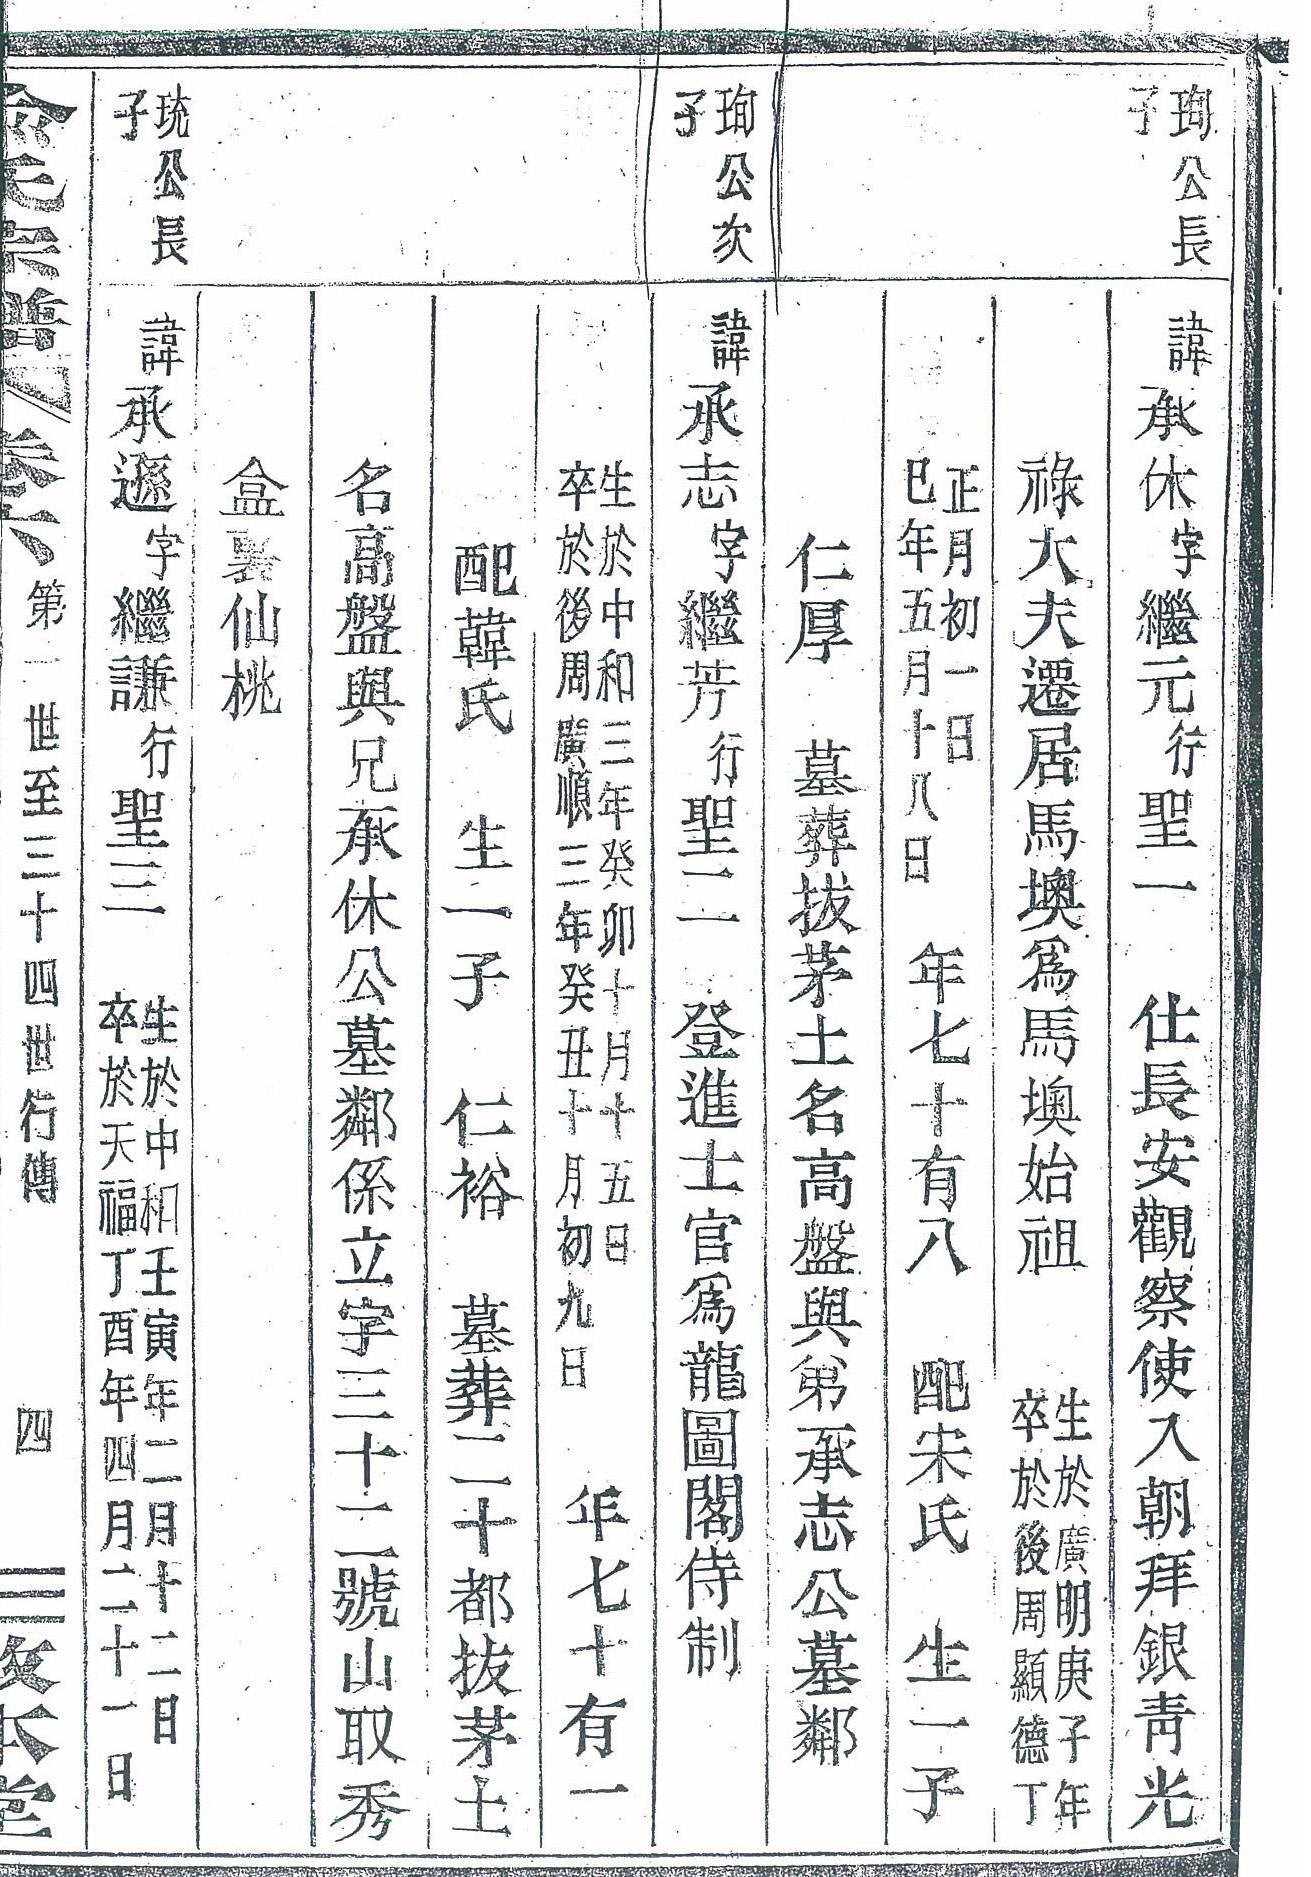 珣公長
子
諱承休字繼元行聖一　仕長安觀察使入朝拜銀青光
祿大夫遷居馬墺爲馬墺始祖　生於廣明庚子年
卒於後周顯德丁
正月初一日
巳年五月十八日　年七十有八　配宋氏　生一子
仁厚　墓葬拔茅土名高盤與弟承志公墓鄰
珣公次
子
諱承志字繼芳行聖二　登進士官爲龍圖閣侍制
生於中和三年癸卯十月十五日
卒於後周廣順三年癸丑十月初九日　年七十有一
配韓氏　生一子　仁裕　墓葬二十都拔茅土
名高盤與兄承休公墓鄰係立字三十二號山取秀
盒裝仙桃
珫公長
子
諱承遜字繼謙行聖三　生於中和壬寅年二月十二日
卒於天福丁酉年四月二十一日
氏宗譜卷六　第一世至三十四世行傳　四　敦本堂